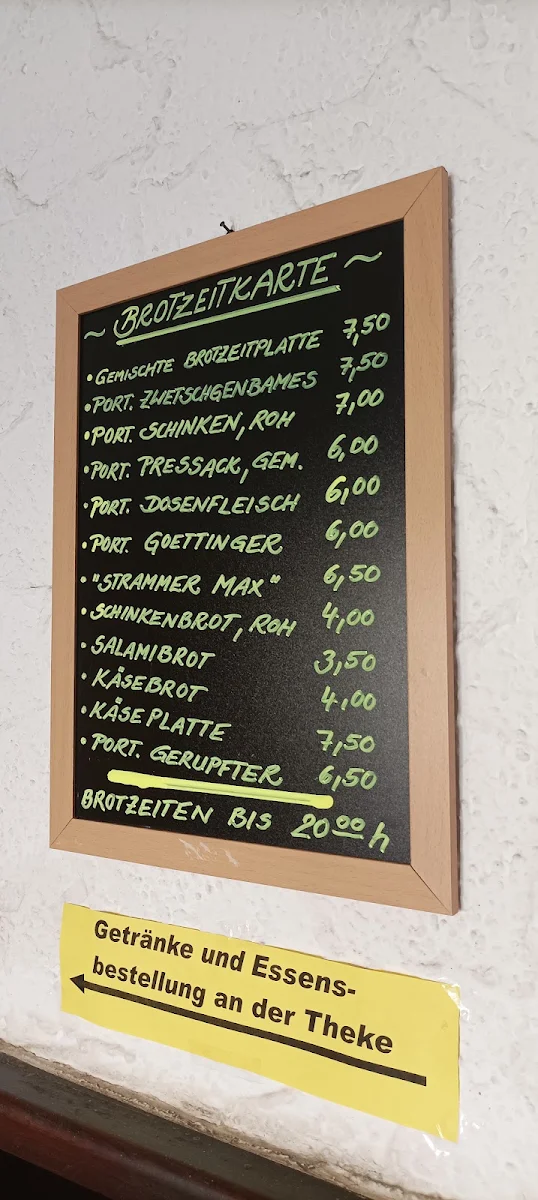 ~ BROTZEITKARTE ~
• GEMISCHTE BROTZEITPLATTE 7,50
• PORT. ZWETSCHGENBAMES 7,50
• PORT. SCHINKEN, ROH 7,00
• PORT. PRESSACK, GEM. 6,00
• PORT. DOSENFLEISCH 6,00
• PORT. GOETTINGER 6,00
• "STRAMMER MAX" 6,50
• SCHINKENBROT, ROH 4,00
• SALAMIBROT 3,50
• KÄSEBROT 4,00
• KÄSEPLATTE 7,50
• PORT. GERUPFTER 6,50
BROTZEITEN BIS 20 00 h
Getränke und Essens-
bestellung an der Theke